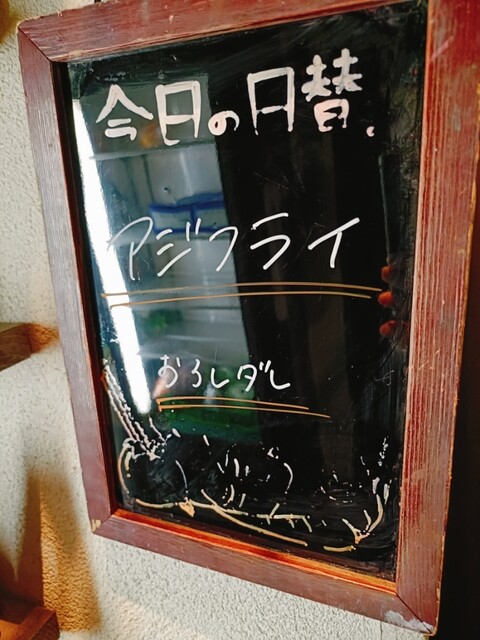 今日の日替.
アジフライ
おろしダレ